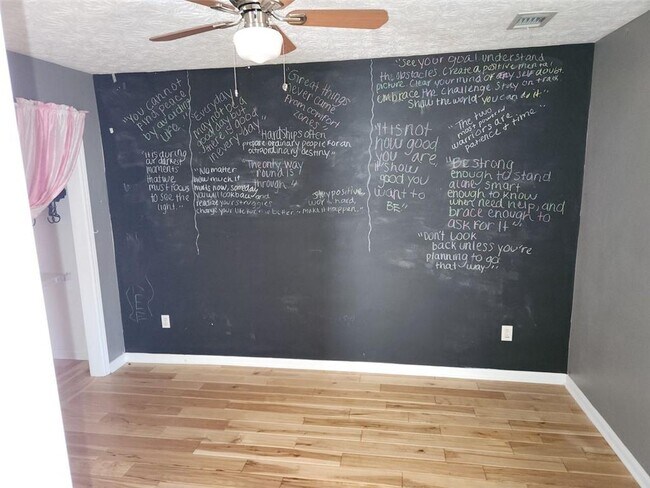 "You cannot
find peace
by avoiding
life."
"It is during
our darkest
moments
that we
must focus
to see the
light."
Everyday
may not be
good but
there is good
in every day."
"No matter
how much it
hurts now, someday
you'll look back and
realize your struggles
change your life for
better"
"Great things
never come
from comfort
zones."
"Hardships often
prepare ordinary people for an
extraordinary destiny"
"The only way
round is
through."
"Stay positive
work hard
make it happen
"See your goal understand
the obstacles create a positive mental
picture clear your mind of any self doubt
embrace the challenge stay on track
show the world you can do it"
"It is not
how good
you are
it show
good you
want to
BE"
"The two
most powerful
warriors are
patience & time
"Be strong
enough to stand
alone smart
enough to know
when need help, and
brace enough to
ask for it"
"Don't look
back unless you're
planning to go
that way"